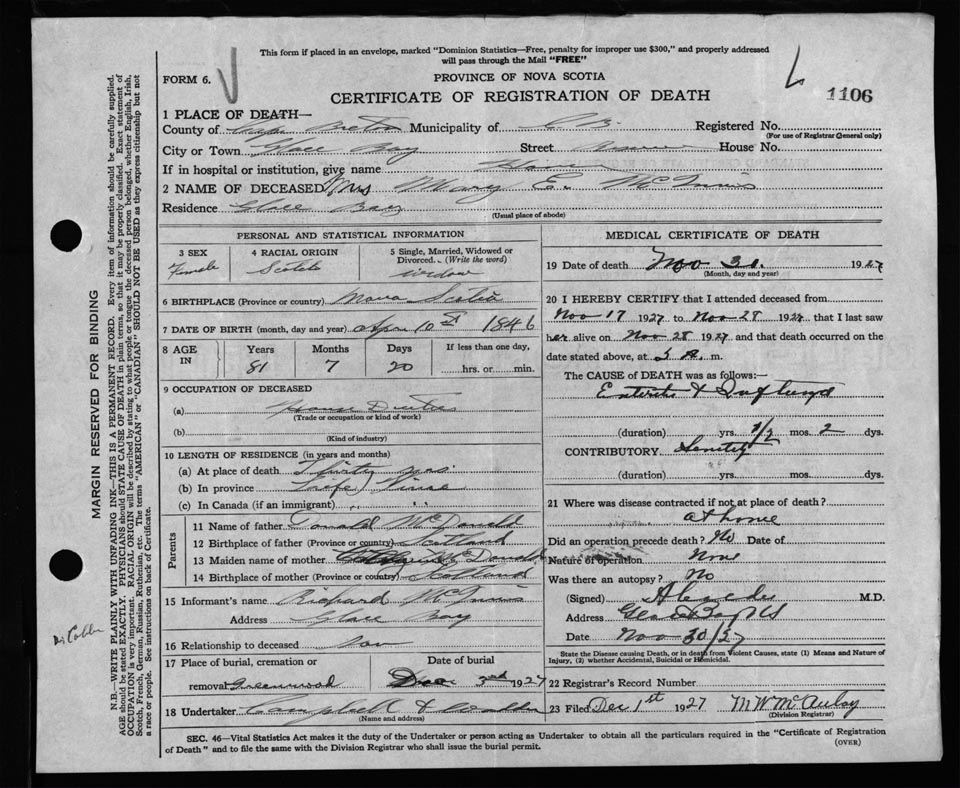 This form if placed in an envelope, marked "Dominion Statistics—Free, penalty for improper use $300," and properly addressed
will pass through the Mail "FREE"
FORM 6.
PROVINCE OF NOVA SCOTIA
CERTIFICATE OF REGISTRATION OF DEATH
1106
1 PLACE OF DEATH—
County of Cape Breton Municipality of C.B. Registered No.
(For use of Registrar General only)
City or Town Glace Bay Street House No.
If in hospital or institution, give name Home
2 NAME OF DECEASED Mrs Mary E. McInnis
Residence Glace Bay
(Usual place of abode)
PERSONAL AND STATISTICAL INFORMATION
3 SEX
Female
4 RACIAL ORIGIN
Scotch
5 Single, Married, Widowed or
Divorced. (Write the word)
widow
6 BIRTHPLACE (Province or country) Nova Scotia
7 DATE OF BIRTH (month, day and year) Apr 10 1846
8 AGE
IN
Years Months Days If less than one day,
81 7 20 hrs. or min.
9 OCCUPATION OF DECEASED
(a) House Duties
(Trade or occupation or kind of work)
(b)
(Kind of industry)
10 LENGTH OF RESIDENCE (in years and months)
(a) At place of death Thirty yrs.
(b) In province Life
(c) In Canada (if an immigrant)
Parents
11 Name of father Donald McDonald
12 Birthplace of father (Province or country) Scotland
13 Maiden name of mother McDonald
14 Birthplace of mother (Province or country) Scotland
15 Informant's name Richard McInnis
Address Glace Bay
16 Relationship to deceased Son
17 Place of burial, cremation or
removal Greenwood
Date of burial
Dec 2nd 1927
18 Undertaker Campbell &
(Name and address)
MEDICAL CERTIFICATE OF DEATH
19 Date of death Nov 30. 1927
(Month, day and year)
20 I HEREBY CERTIFY that I attended deceased from
Nov 17 1927 to Nov 28 1927 that I last saw
her alive on Nov 28 1927 and that death occurred on the
date stated above, at A. m.
The CAUSE of DEATH was as follows:—
Enteritis &
(duration) yrs. 1/2 mos. 2 dys.
CONTRIBUTORY Senility
(duration) yrs. mos. dys.
21 Where was disease contracted if not at place of death?
at home
Did an operation precede death? No Date of
Nature of operation None
Was there an autopsy? No
(Signed) M.D.
Address Glace Bay NS
Date Nov 30/27
State the Disease causing Death, or in death from Violent Causes, state (1) Means and Nature of
Injury, (2) whether Accidental, Suicidal or Homicidal.
22 Registrar's Record Number
23 Filed Dec 1st 1927 M W McAulay
(Division Registrar)
SEC. 46—Vital Statistics Act makes it the duty of the Undertaker or person acting as Undertaker to obtain all the particulars required in the "Certificate of Registration
of Death" and to file the same with the Division Registrar who shall issue the burial permit.
(OVER)
MARGIN RESERVED FOR BINDING
N.B.—WRITE PLAINLY WITH UNFADING INK—THIS IS A PERMANENT RECORD. Every item of information should be carefully supplied.
AGE should be stated EXACTLY. PHYSICIANS should STATE CAUSE OF DEATH in plain terms, so that it may be properly classified. Exact statement of
OCCUPATION is very important. RACIAL ORIGIN will be described by stating to what people or tongue the deceased person belonged, whether English, Irish,
Scotch, French, German, Russian, Ruthenian, etc. The terms "AMERICAN" or "CANADIAN" SHOULD NOT BE USED as they express citizenship but not
a race or people. See instructions on back of Certificate.